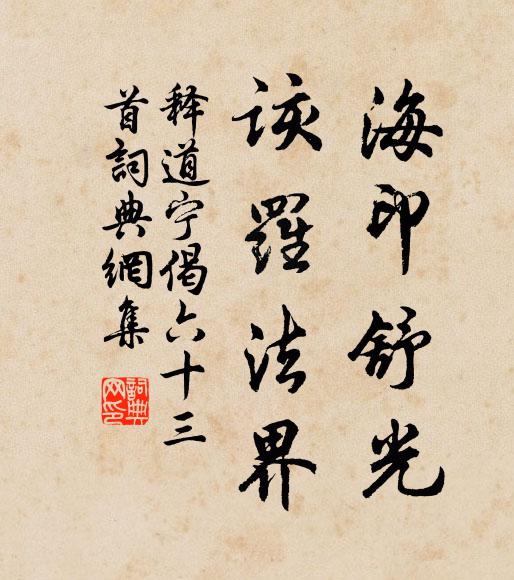 海印舒光
该羅法界
释道宁偈六十三
首詞典網集
詞典网印